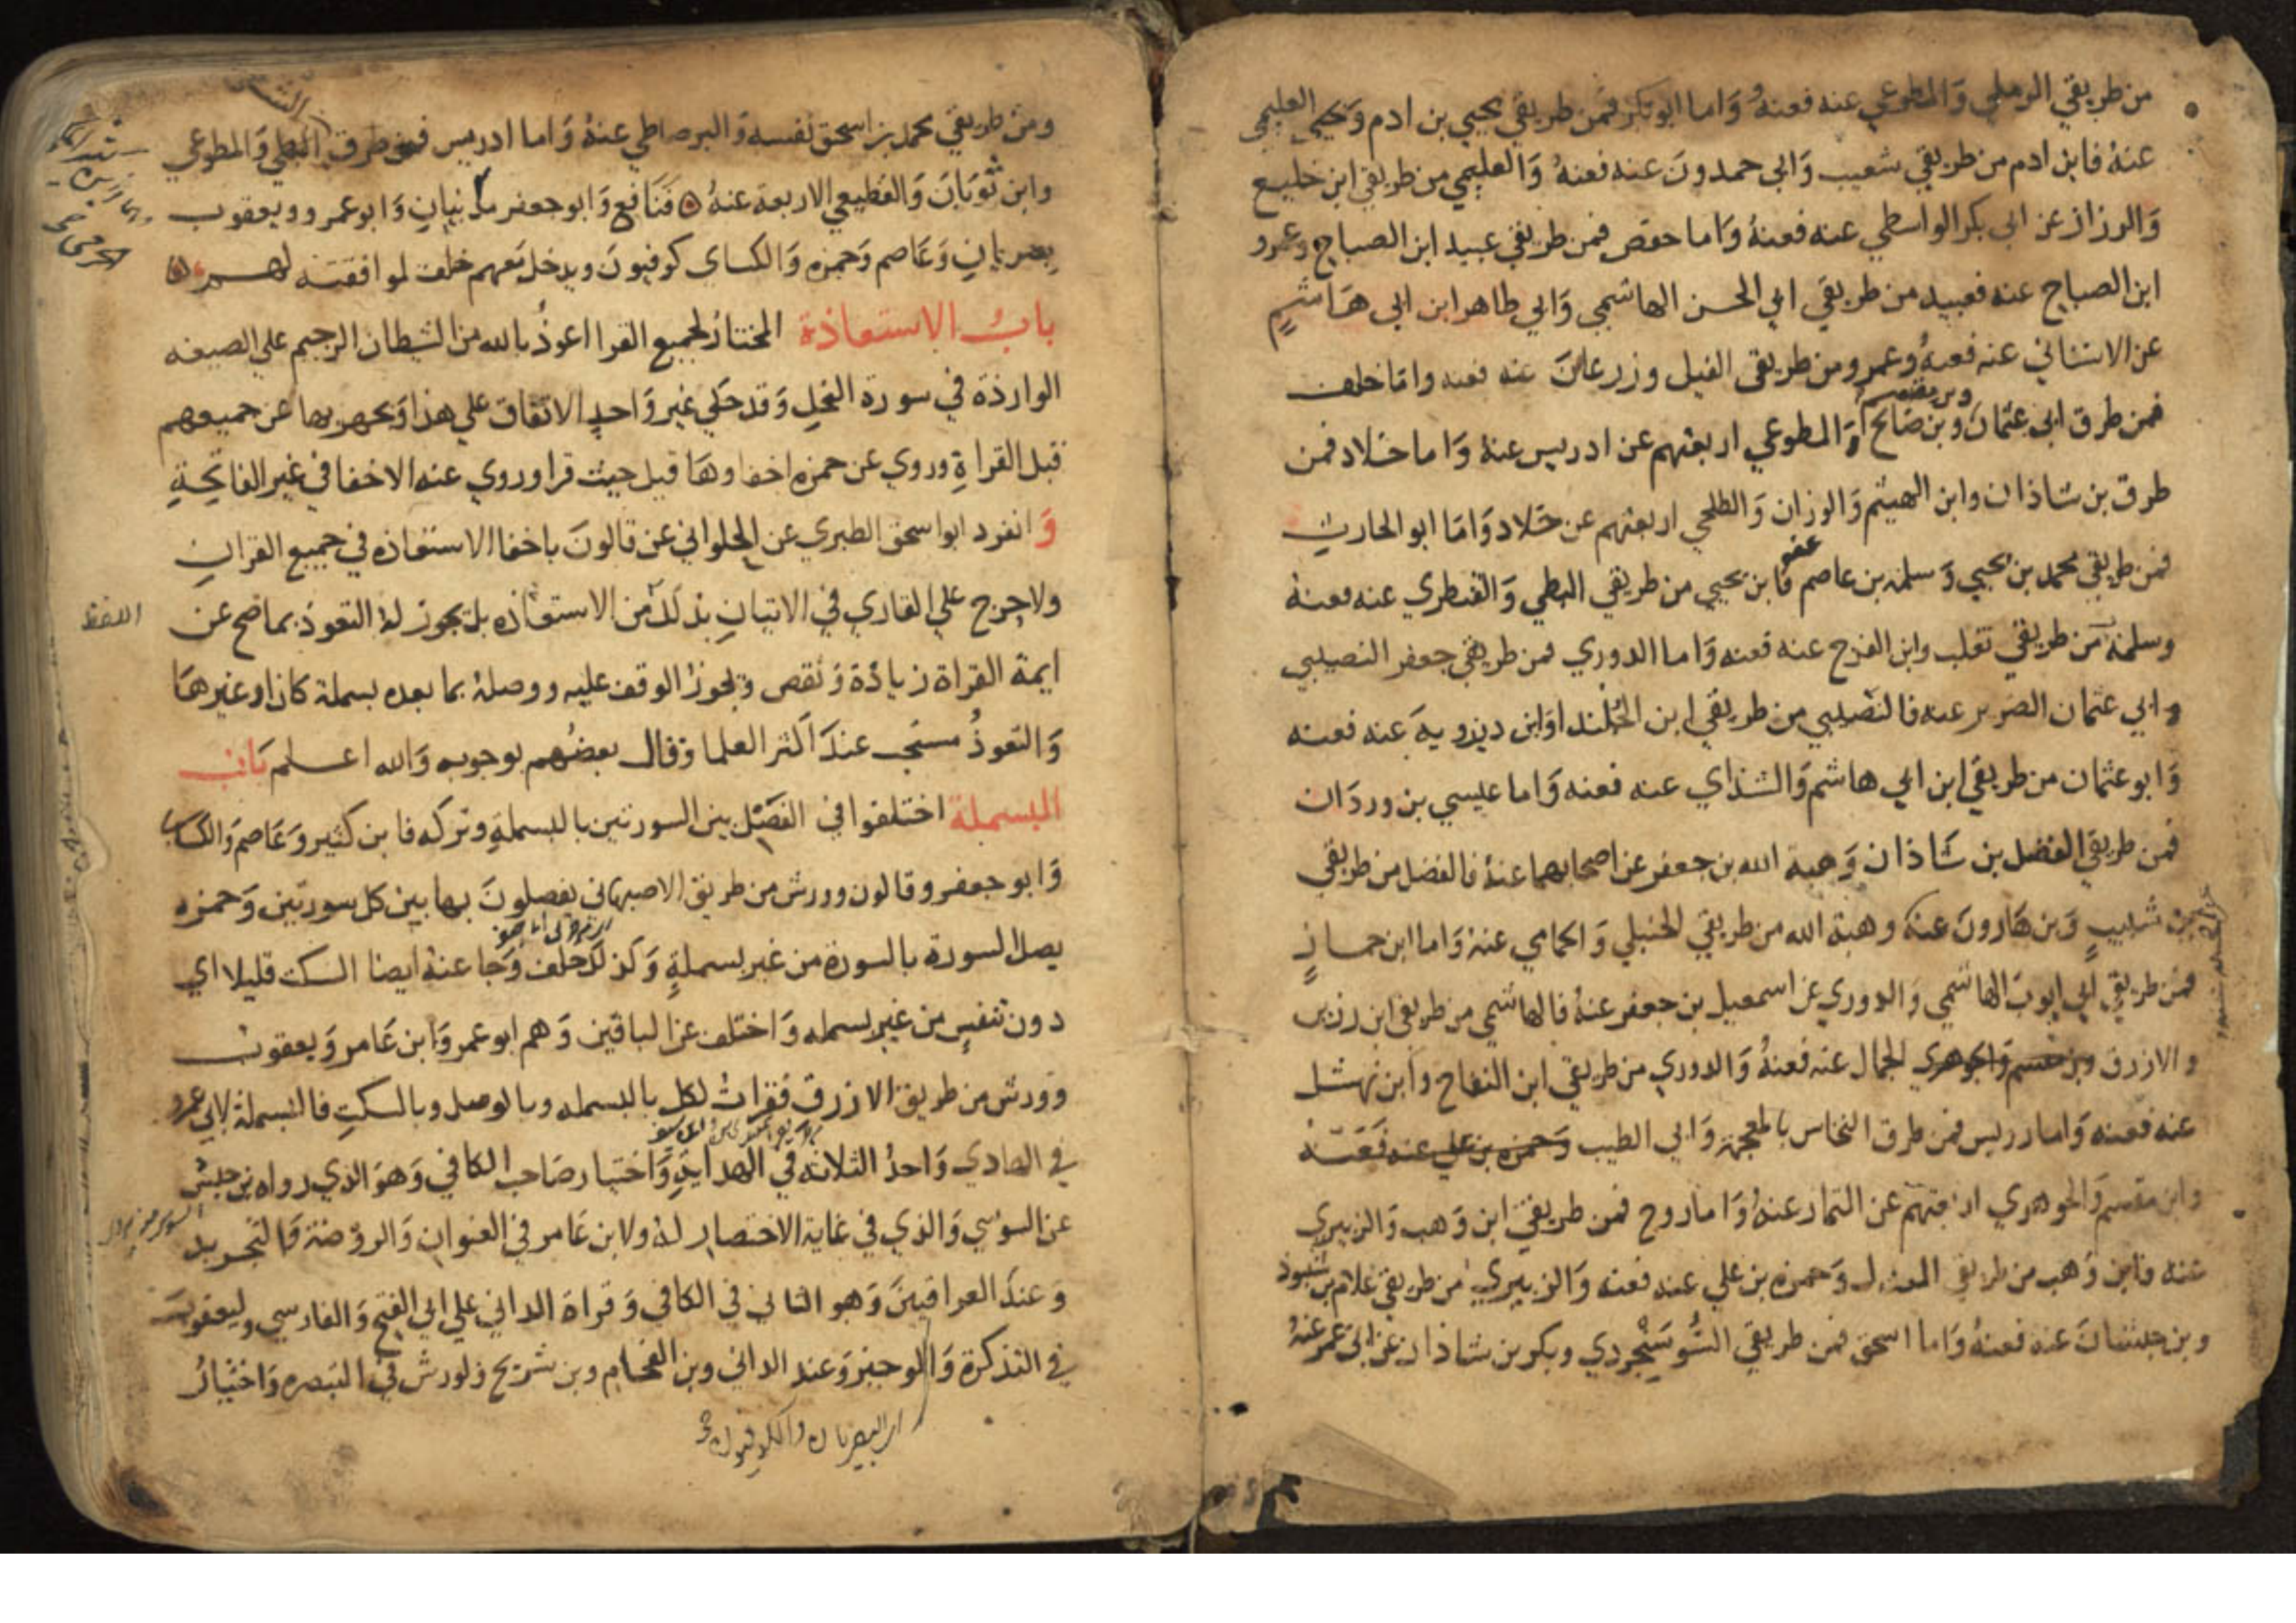 من طريقي الرملي والمطوعي عنه فعنه واما ابو بكر فمن طريقي يحيي بن ادم ويحيي العليمي
عنه فابن ادم من طريقي شعيب وابي حمدون عنه فعنه والعليمي من طريقي ابن خليع
والرزاز عن ابي بكر الواسطي عنه فعنه واما حفص فمن طريقي عبيد ابن الصباح وعمرو
ابن الصباح عنه فعبيد من طريقي ابي الحسن الهاشمي وابي طاهر ابن ابي هاشم
عن الاشناني عنه فعنه وعمرو من طريقي الفيل وزرعان عنه فعنه واما خلف
فمن طرق ابي عثمان وبن مقسم وبن صالح والمطوعي اربعتهم عن ادريس عنه واما خلاد فمن
طرق بن شاذان وابن الهيثم والوزان والطلحي اربعتهم عن خلاد واما ابو الحارث
فمن طريقي محمد بن يحيي وسلمة بن عاصم عنه فابن يحيي من طريقي البطي والقنطري عنه فعنه
وسلمة من طريقي ثعلب وابن الفرج عنه فعنه واما الدوري فمن طريقي جعفر النصيبي
وابي عثمان الضرير عنه فالنصيبي من طريقي ابن الجلندا وابن ديزويه عنه فعنه
وابو عثمان من طريقي ابن ابي هاشم والشذاي عنه فعنه واما عيسي بن وردان
فمن طريقي الفضل بن شاذان وهبة الله بن جعفر عن اصحابهما عنه فالفضل من طريقي
بن شبيب وبن هارون عنه وهبة الله من طريقي الحنبلي والحمامي عنه واما ابن جماز
فمن طريقي ابي ايوب الهاشمي والدوري عن اسمعيل بن جعفر عنه فالهاشمي من طريقي ابن رزين
والازرق وبن مقسم والجوهري الجمال عنه فعنه والدوري من طريقي ابن النفاح وابن نهشل
عنه فعنه واما رويس فمن طرق النخاس بالمعجمة وابي الطيب وحمزه بن علي عنه فعنه
وابن مقسم والجوهري اربعتهم عن التمار عنه واما روح فمن طريقي ابن وهب والزبيري
عنه فابن وهب من طريقي المعدل وحمزه بن علي عنه فعنه والزبيري من طريقي غلام بن شنبوذ
وبن حبشان عنه فعنه واما اسحق فمن طريقي السوسنجردي وبكر بن شاذان عن ابن عمر عنه
ومن طريقي محمد بن اسحق نفسه والبرصاطي عنه واما ادريس فمن طرق الشطي والمطوعي
وابن بويان والقطيعي الاربعة عنه فنافع وابو جعفر مدنيان وابو عمرو ويعقوب
بصريان وعاصم وحمزه والكساي كوفيون ويدخل معهم خلف لموافقته لهم
باب الاستعاذة المختار لجميع القرا اعوذ بالله من الشيطان الرجيم علي الصيغه
الواردة في سورة النحل وقد حكي غير واحد الاتفاق علي هذا ويجهر بها عن جميعهم
قبل القراة وروي عن حمزه اخفاوها قيل حيث قرا وروي عنه الاخفا في غير الفاتحة
وانفرد ابو اسحق الطبري عن الحلواني عن قالون باخفا الاستعاذه في جميع القران
ولا حرج علي القاري في الاتيان بذلك من الاستعاذه بل يجوز له التعوذ بما صح عن
اللفظ
ايمة القراة زيادة ونقص ويجوز الوقف عليه ووصله بما بعده بسملة كان او غيرها
والتعوذ مستحب عند اكثر العلما وقال بعضهم بوجوبه والله اعلم باب
البسملة اختلفوا في الفصل بين السورتين بالبسملة وتركه فابن كثير وعاصم والكساي
وابو جعفر وقالون وورش من طريق الاصبهاني يفصلون بها بين كل سورتين وحمزه
يصل السورة بالسورة من غير بسملة وكذلك خلف وجا عنه ايضا السكت قليلا اي
دون تنفس من غير بسمله واختلف عن الباقين وهم ابو عمرو وابن عامر ويعقوب
وورش من طريق الازرق فقرات لكل بالبسمله وبالوصل وبالسكت فالبسملة لابي عمرو
في الهادي واحد الثلاثه في الهداية واختيار صاحب الكافي وهو الذي رواه بن حبش
عن السوسي والذي في غاية الاختصار له ولابن عامر في العنوان والروضة والتجريد
وعند العراقيين وهو الثاني في الكافي وقراة الداني علي ابي الفتح والفارسي وليعقوب
في التذكرة والوجيز وعند الداني وبن الفحام وبن شريح ولورش في التبصره واختيار
البصريان والكوفيون